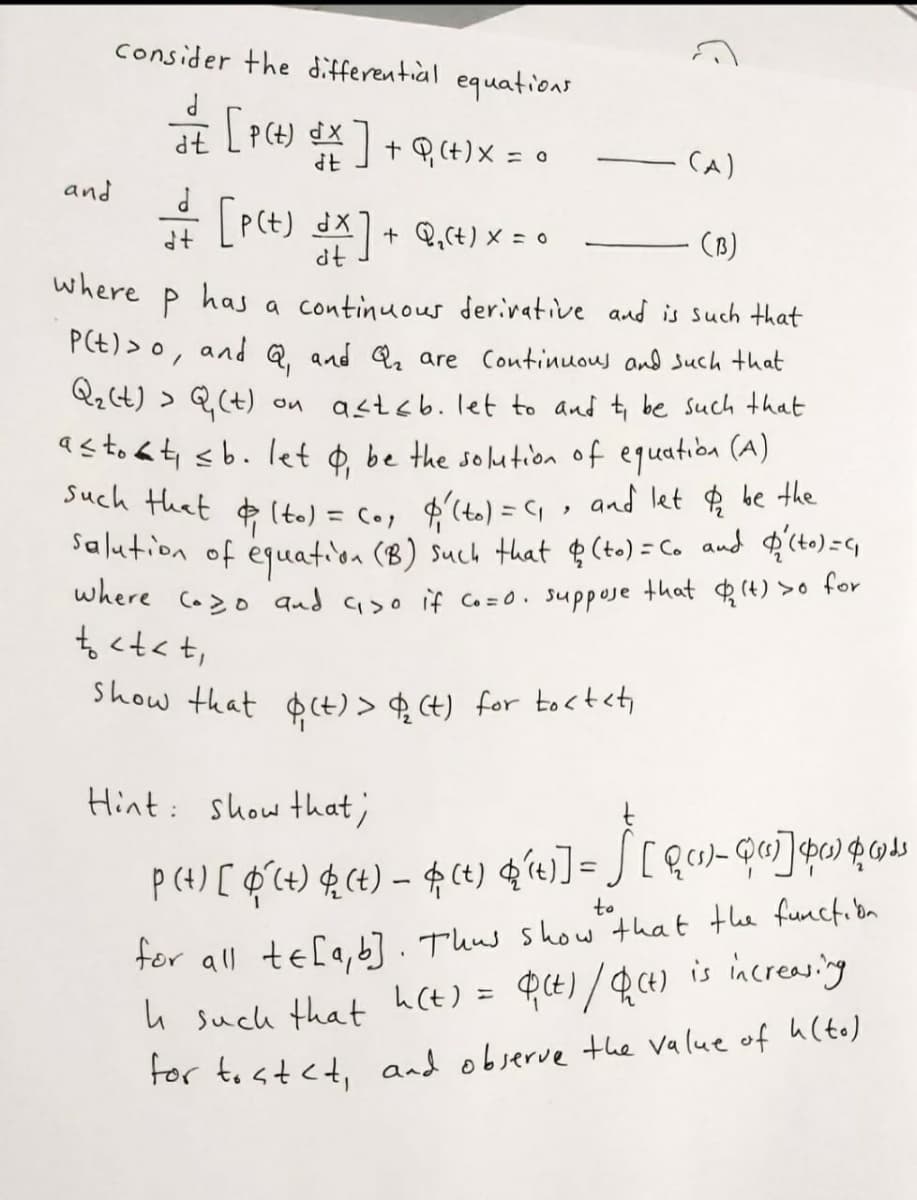 consider the differential equations
d/dt [P(t) dx/dt] + Q₁(t)x = 0 —— (A)
and d/dt [P(t) dx/dt] + Q₂(t)x = 0 —— (B)
where p has a continuous derivative and is such that
P(t)>0, and Q₁ and Q₂ are Continuous and such that
Q₂(t) > Q₁(t) on a≤t≤b. let to and t₁ be such that
a≤t₀<t₁≤b. let ϕ₁ be the solution of equation (A)
such that ϕ₁(t₀) = C₀, ϕ₁'(t₀) = C₁, and let ϕ₂ be the
solution of equation (B) such that ϕ₂(t₀) = C₀ and ϕ₂'(t₀)=C₁
where C₀≥0 and C₁>0 if C₀=0. suppose that ϕ₂(t) >0 for
t₀<t<t₁
show that ϕ₁(t) > ϕ₂(t) for t₀<t<t₁
Hint: show that;
p(t) [ϕ₁'(t) ϕ₂(t) − ϕ₁(t) ϕ₂'(t)] = ∫ₜ₀ᵗ [Q₂(s)-Q₁(s)] ϕ₁(s) ϕ₂(s) ds
for all t∈[a,b]. Thus show that the function
h such that h(t) = ϕ₁(t) / ϕ₂(t) is increasing
for t₀<t<t₁ and observe the value of h(t₀)